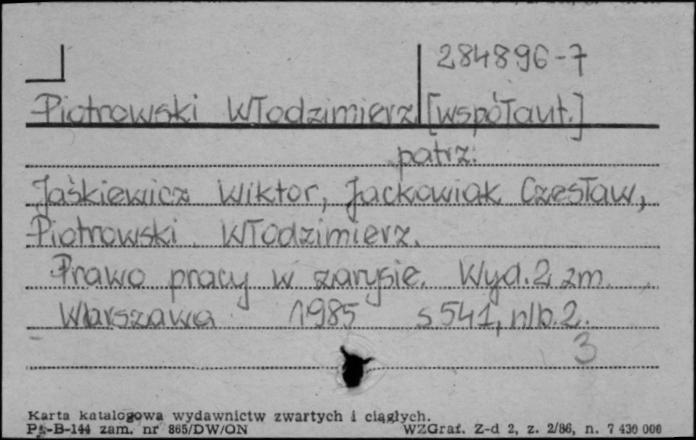 284896-7
Piotrowski Włodzimierz [współaut.]
patrz:
Jaśkiewicz Wiktor, Jackowiak Czesław,
Piotrowski Włodzimierz.
Prawo pracy w zarysie. Wyd. 2 zm.
Warszawa 1985 s 541, nlb. 2.
3
Karta katalogowa wydawnictw zwartych i ciągłych.
Pu-B-144 zam. nr 865/DW/ON WZGraf. Z-d 2, z. 2/86, n. 7 430 000